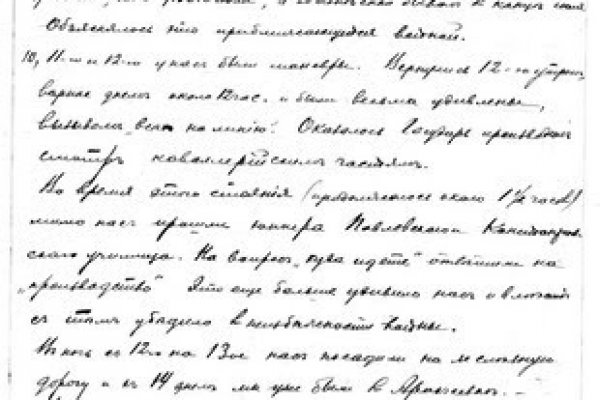 Объяснялось это приближающейся войной.
10, 11-го и 12-го у нас были маневры. Вернулись 12-го утром,
вернее днем около 12 час. и были весьма удивлены,
вызовом "всех на линию". Оказалось Государь производит
смотр кавалерийским частям.
Во время этого стояния (продолжалось около 1 1/2 часов)
мимо нас прошли юнкера Павловского
ского училища. На вопрос "куда идете" ответили на
"производство" Это еще больше удивило нас и
с тем убедило в неизбежности войны.
В ночь с 12-го на 13-ое нас посадили на железную
дорогу и с 14 днем мы уже были в